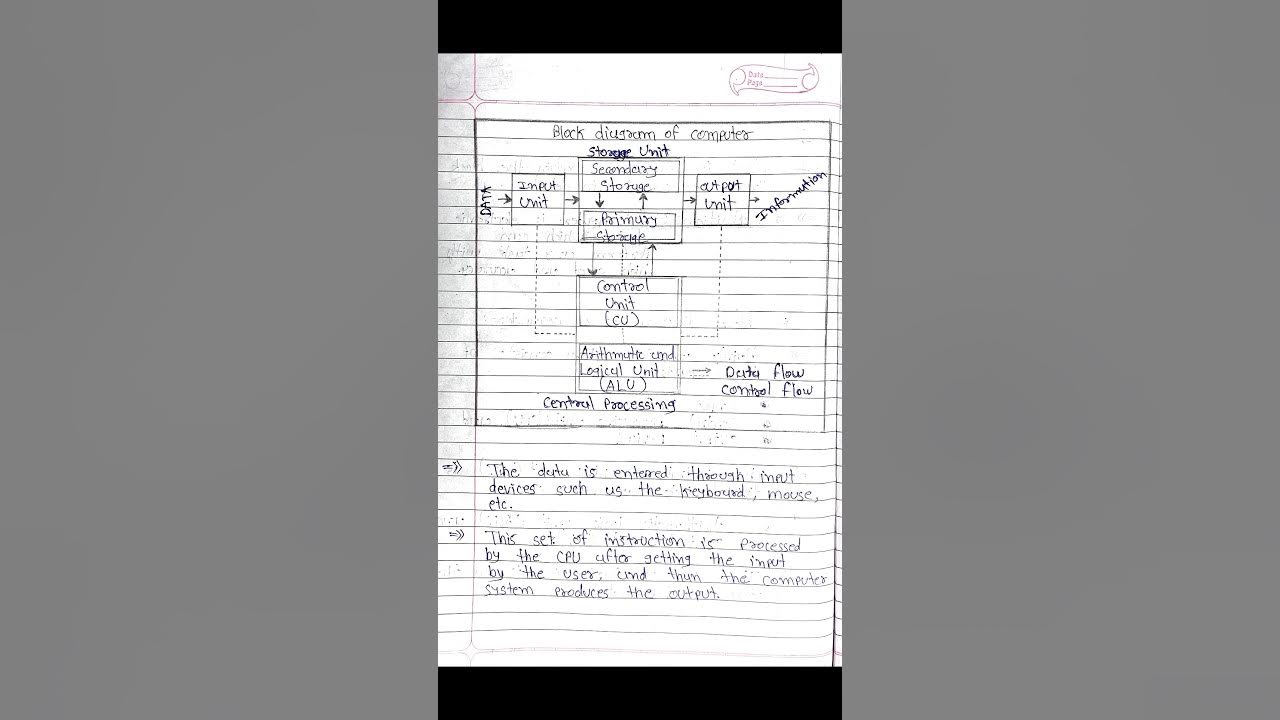 Data
Page
Block diagram of computer
Storage Unit
Secondary
Storage
DATA
Input
Unit
output
Unit
Information
Primary
Storage
Control
Unit
(CU)
Arithmatic and
Logical Unit
(ALU)
Data flow
control flow
Central Processing
=>> The data is entered through input
devices such us the Keyboard, mouse,
etc.
=>> This set of instruction is processed
by the CPU after getting the input
by the user, and thun the computer
system produces the output.